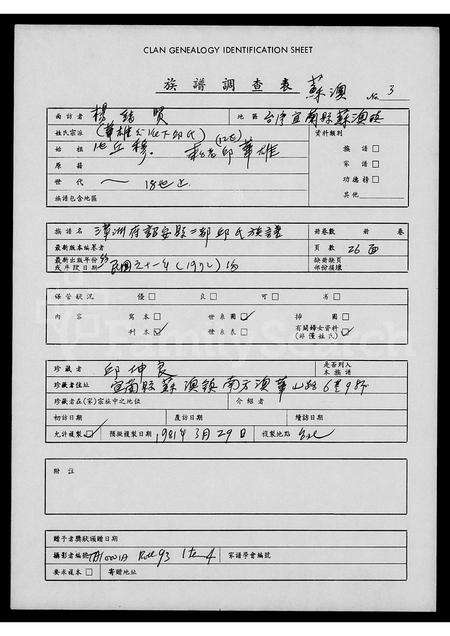 CLAN GENEALOGY IDENTIFICATION SHEET
族譜調查表 蘇澳 No. 3
面訪者 楊緒賢 地區 台灣宜蘭縣蘇澳鎮
姓氏宗派 資料類別
始祖 華雄 族譜□
原籍 家譜□
世代 一～18世止 功德榜□
族譜包含地區 其他
族譜名 漳洲府詔安縣二都邱氏族譜 前卷數 前卷
最新版本編著者 頁數 26面
最新出版年份 或手院日期 缺前缺頁
保管狀況 優□ 良□ 可□ 劣□
內容 寫本□ 世系圖☑ 排圖□
刊本☑ 世系表□ 有關婦女資料(非僅姓氏)☑
珍藏者 邱坤良 是否列入本族譜
珍藏者住址 宜蘭縣蘇澳鎮南方澳華山路6巷9號
珍藏者在(家)宗祉中之地位 介紹者
初訪日期 復訪日期 續訪日期
允許複製☑ 預擬複製日期 1981年3月29日 複製地點
附註
贈予者獎狀頒贈日期
攝影者編號 Roll 93 Item 4 家譜學會編號
要求複本□ 寄贈地址